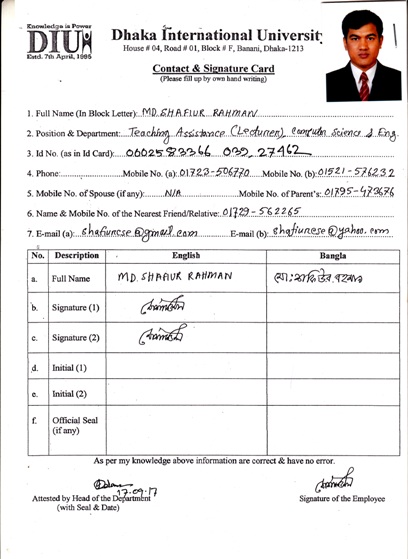 Knowledge is Power
DIU
Estd. 7th April, 1995
Dhaka International University
House # 04, Road # 01, Block # F, Banani, Dhaka-1213
Contact & Signature Card
(Please fill up by own hand writing)
1. Full Name (In Block Letter): MD. SHAFIUR RAHMAN
2. Position & Department: Teaching Assistance (Lecturer), Computer Science & Eng.
3. Id No. (as in Id Card): 0002583366 039, 27462
4. Phone: Mobile No. (a): 01723-506770 Mobile No. (b): 01521-576232
5. Mobile No. of Spouse (if any): N/A Mobile No. of Parent's: 01795-473676
6. Name & Mobile No. of the Nearest Friend/Relative: 01729-562265
7. E-mail (a): shafiurcse@gmail.com E-mail (b): shafiurcse@yahoo.com
No. Description English Bangla
a. Full Name MD. SHAFIUR RAHMAN মো: শফিউর রহমান
b. Signature (1)
c. Signature (2)
d. Initial (1)
e. Initial (2)
f. Official Seal
(if any)
As per my knowledge above information are correct & have no error.
17-09-17
Attested by Head of the Department
(with Seal & Date)
Signature of the Employee